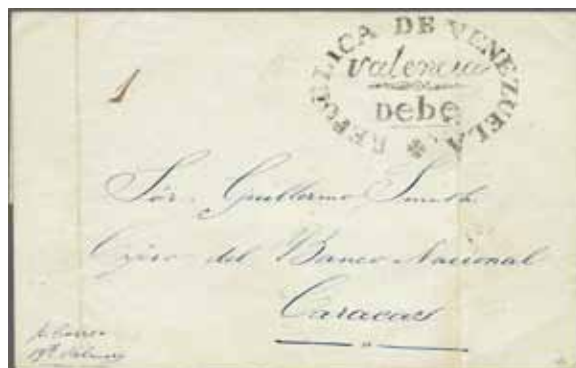 REPUBLICA DE VENEZUELA
Valencia
Debe
1
Sör. Guillermo Smith
del Banco Nacional
Caracas